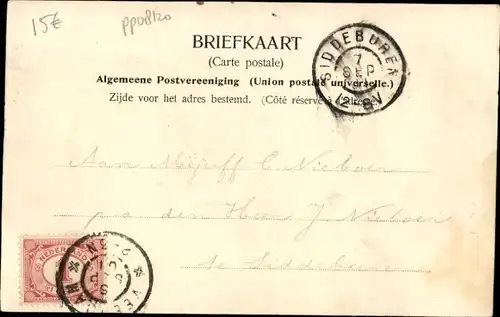 15€ PP08120
BRIEFKAART
(Carte postale)
Algemeene Postvereeniging (Union postale universelle.)
Zijde voor het adres bestemd. (Côté réservé à l'adresse.)
SIDDEBUREN
7
SEP
Aan Mejuff C. Nieboer
p a den Heer J. Nieboer
te Siddeburen
NEDERLAND
VEENDAM